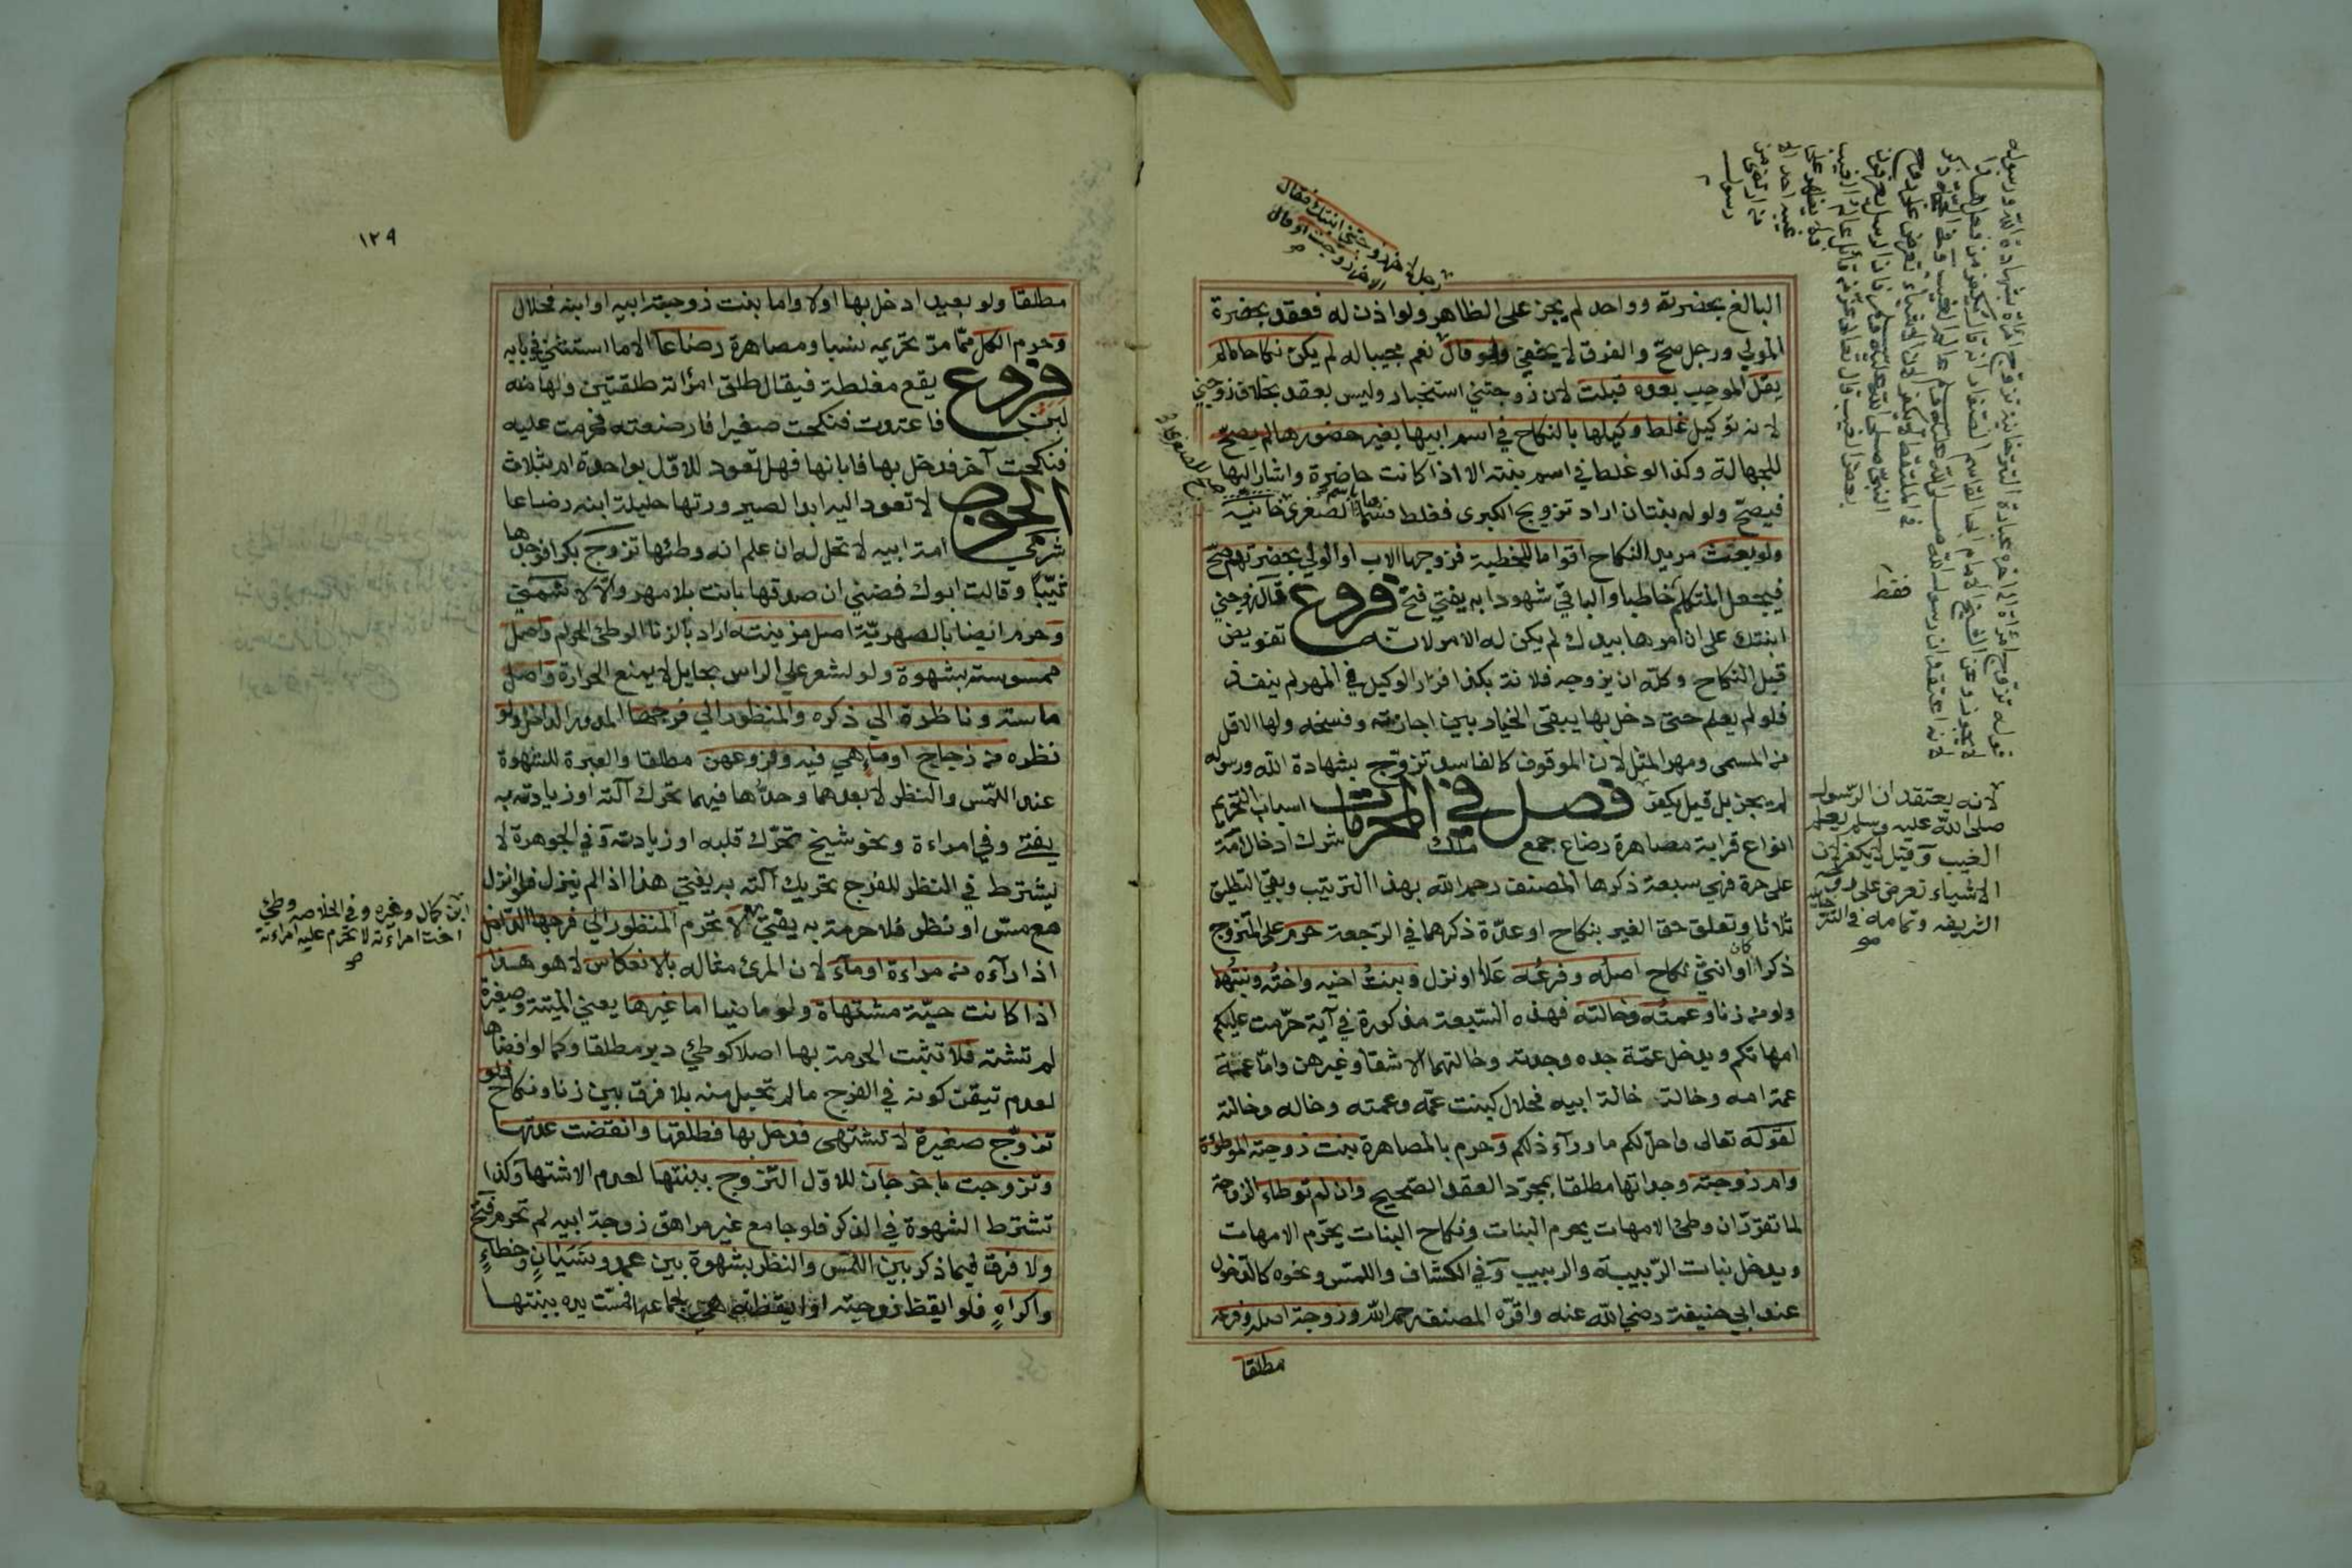 البالغ بحضرته وواحد لم يجز على الظاهر ولو اذن له فعقد بحضرة
المولى ورجل صح والفرق لا يخفى ولو قال نعم مجيبا له لم يكن نكاحا مالم
يقل الموجب بعده قبلت لان زوجتني استخبار وليس بعقد بخلاف زوجني
لانه توكيل غلط وكيلها بالنكاح في اسم ابيها بغير حضورها لم يصح
للجهالة وكذا لو غلط في اسم بنته الا اذا كانت حاضرة واشار اليها
فيصح ولو له بنتان اراد تزويج الكبرى فغلط فسماها باسم الصغرى خانية
ولو بعث مريد النكاح اقواما للخطبة فزوجها الاب او الولي بحضرتهم صح
فيجعل المتكلم خاطبا والباقي شهودا به يفتى فتح فروع قال زوجني
ابنتك على ان امرها بيدك لم يكن له الامر لانه تفويض
قبل النكاح وكله ان يزوجه فلانة بكذا فزاد الوكيل في المهر لم ينفذ
فلو لم يعلم حتى دخل بها يبقى الخيار بين اجازته وفسخه ولها الاقل
من المسمى ومهر المثل لان الموقوف كالفاسد تزوج بشهادة الله ورسوله
لم يجز بل قيل يكفر فصل في المحرمات اسباب التحريم
انواع قرابة مصاهرة رضاع جمع ملك شرك ادخال امة
على حرة فهي سبعة ذكرها المصنف رحمه الله بهذا الترتيب وبقي التطليق
ثلاثا وتعلق حق الغير بنكاح او عدة ذكرهما في الرجعة حرم على المتزوج
ذكرا كان او انثى نكاح اصله وفرعه علا او نزل وبنت اخيه واخته وبنتها
ولو من زنا وعمته وخالته فهذه السبعة مذكورة في آية حرمت عليكم
امهاتكم ويدخل عمة جده وجدته وخالتهما الاشقا وغيرهن واما عمة
عمة امه وخالة خالة ابيه فحلال كبنت عمه وعمته وخاله وخالته
لقوله تعالى واحل لكم ماورآء ذلكم وحرم بالمصاهرة بنت زوجته الموطوءة
وام زوجته وجداتها مطلقا بمجرد العقد الصحيح وان لم توطاء الزوجة
لما تقرر ان وطئ الامهات يحرم البنات ونكاح البنات يحرم الامهات
ويدخل بنات الربيبة والربيب وفي الكشاف واللمس ونحوه كالدخول
عند ابي حنيفة رضي الله عنه واقره المصنف رحمه الله وزوجة اصله وفرعه
مطلقا
لانه يعتقد ان الرسول
صلى الله عليه وسلم يعلم
الغيب وقيل لا يكفر لان
الاشياء تعرض على روحه
الشريفه وتمامه في التتر
فقط
١٢٩
مطلقا ولو بعيدا دخل بها اولا واما بنت زوجة ابيه او ابنه فحلال
وحرم الكل مما مر تحريمه نسبا ومصاهرة رضاعا الا ما استثني في بابه
فروع يقع مغلطة فيقال طلق امرأته طلقتين ولها منه
لبن فاعتدت فنكحت صغيرا فارضعته فحرمت عليه
فنكحت آخر فدخل بها فابانها فهل تعود للاول بواحدة ام بثلاث
الجواب لا تعود اليه ابدا لصيرورتها حليلة ابنه رضاعا
شرى امة ابيه لا تحل له ان علم انه وطئها تزوج بكرا فوجدها
ثيبا وقالت ابوك فضني ان صدقها بانت بلا مهر والا لا شمني
وحرم ايضا بالصهرية اصل مزنيته اراد بالزنا الوطئ الحرام واصل
ممسوسته بشهوة ولو لشعر على الراس بحايل لا يمنع الحرارة واصل
ماسته وناظرة الى ذكره والمنظور الى فرجها المدور الداخل ولو
نظره من زجاج او ماء هي فيه وفروعهن مطلقا والعبرة للشهوة
عند اللمس والنظر لا بعدهما وحدها فيهما تحرك آلته او زيادته به
يفتى وفي امراءة ونحو شيخ تحرك قلبه او زيادته وفي الجوهرة لا
يشترط في النظر للفرج تحريك آلته به يفتى هذا اذا لم ينزل فلو انزل
مع مس او نظر فلا حرمة به يفتى لا تحرم المنظور الى فرجها الداخل
اذا رآه من مراءة او ماء لان المرئ مثاله بالانعكاس لا هو هذا
اذا كانت حية مشتهاة ولو ماضيا اما غيرها يعني الميتة وصغيرة
لم تشته فلا تثبت الحرمة بها اصلا كوطئ دبر مطلقا وكما لو افضاها
لعدم تيقن كونه في الفرج مالم تحبل منه بلا فرق بين زنا ونكاح فلو
تزوج صغيرة لا تشتهى فدخل بها فطلقها وانقضت عدتها
وتزوجت باخر جاز للاول التزوج ببنتها لعدم الاشتها وكذا
تشترط الشهوة في الذكر فلو جامع غير مراهق زوجة ابيه لم تحرم فتح
ولا فرق فيما ذكر بين اللمس والنظر بشهوة بين عمد ونسيان وخطاء
واكراه فلو ايقظ زوجته او ايقظته هي لجماعها فمست يده بنتها
ابن كمال وغيره وفي الخلاصه وطئ
اخت امراءته لا تحرم عليه امراءته